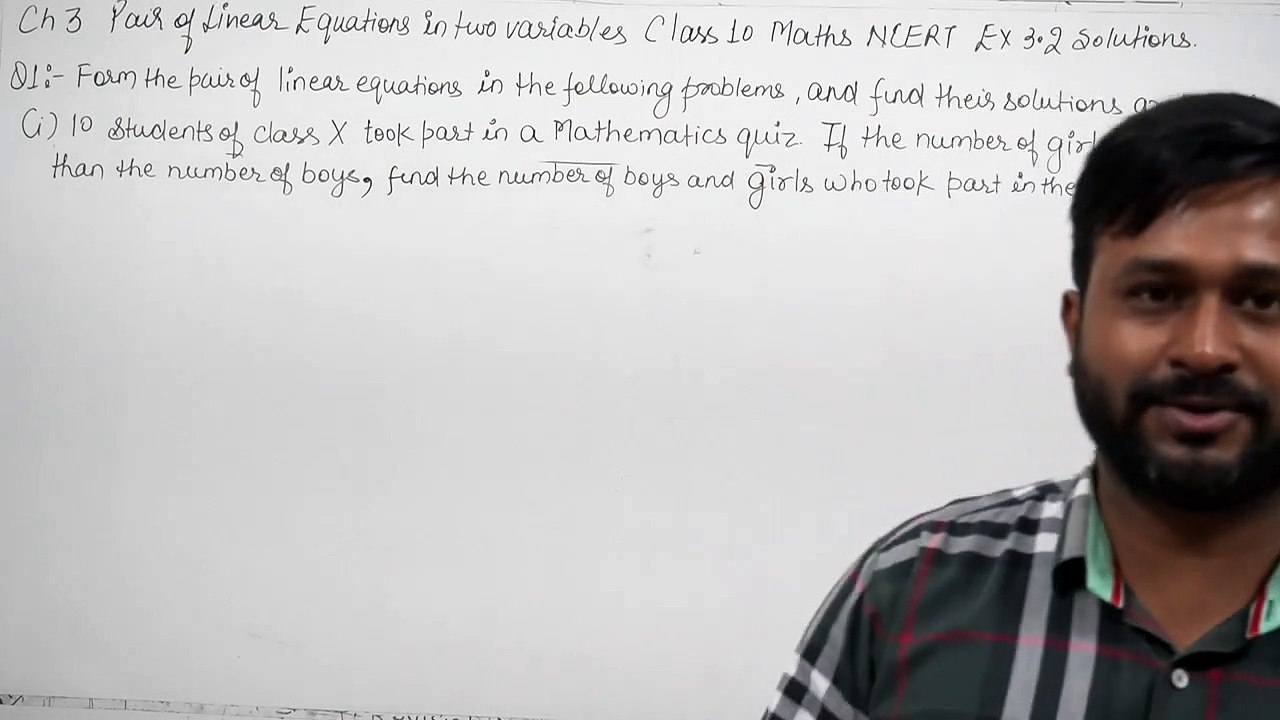 Ch 3 Pair of Linear Equations in two variables Class 10 Maths NCERT Ex 3.2 Solutions.
Q1:- Form the pair of linear equations in the following problems, and find their solutions
(i) 10 students of class X took part in a Mathematics quiz. If the number of girl
than the number of boys, find the number of boys and girls who took part in the